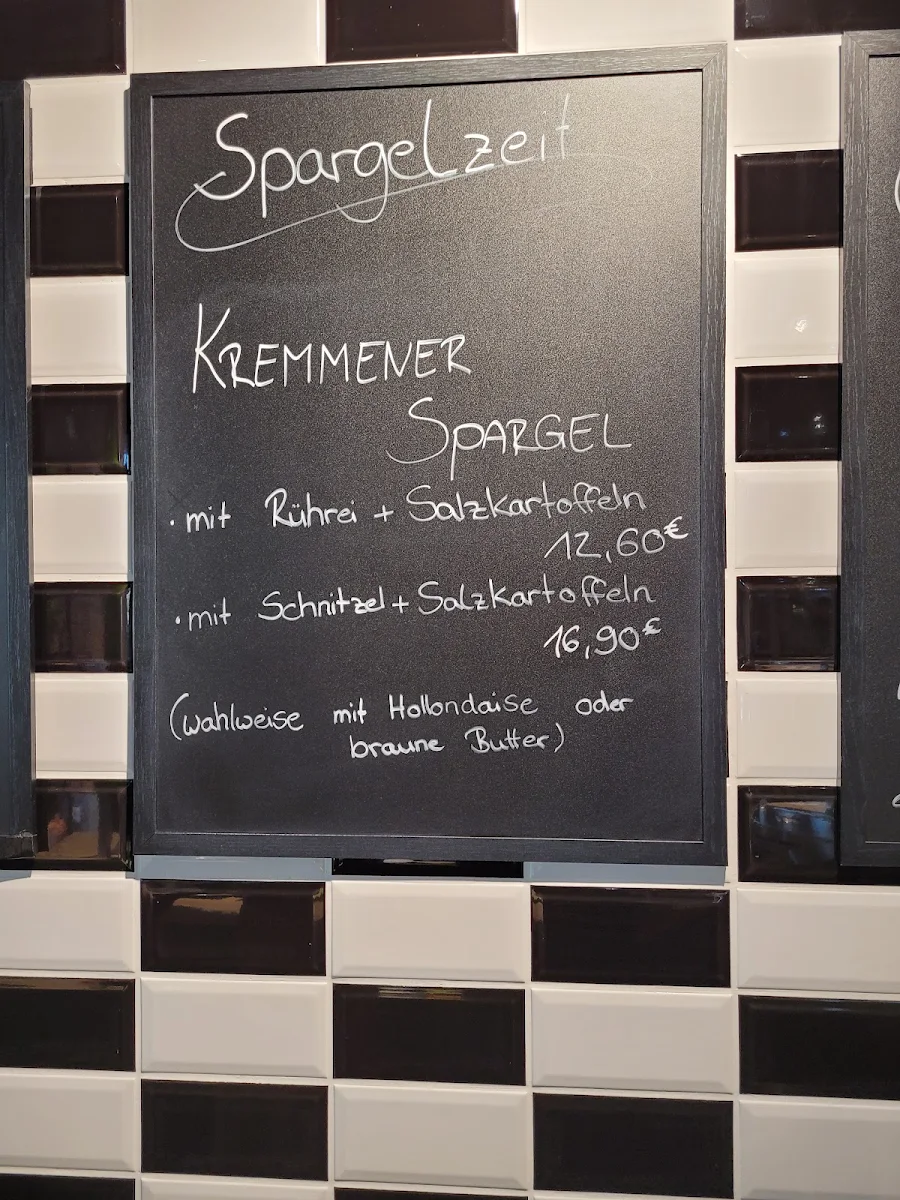 Spargelzeit
KREMMENER
SPARGEL
· mit Rührei + Salzkartoffeln
12,60€
· mit Schnitzel + Salzkartoffeln
16,90€
(wahlweise mit Hollondaise oder
braune Butter)